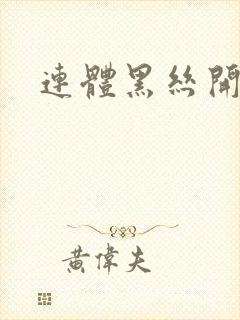 連體黑絲開
黃偉夫